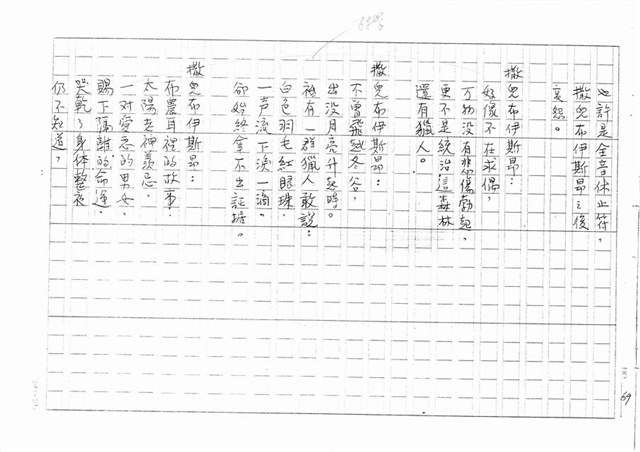 也許是全音休止符，
撒兒布伊斯昂之後
哀怨。
撒兒布伊斯昂：
好像不在求偶，
万物没有悲傷勃起，
更不是統治這森林
還有獵人。
撒兒布伊斯昂：
不曾飛越冬谷，
出没月亮升起時。
被有一群獵人敢說：
白色羽毛紅眼珠，
一声流下淚一滴，
卻始終拿不出証據。
撒兒布伊斯昂：
布農耳裡的故事，
太陽老神羨忌，
一对愛恋的男女，
賜下隔離的命運，
哭乾了身体整夜
仍不知道，
69